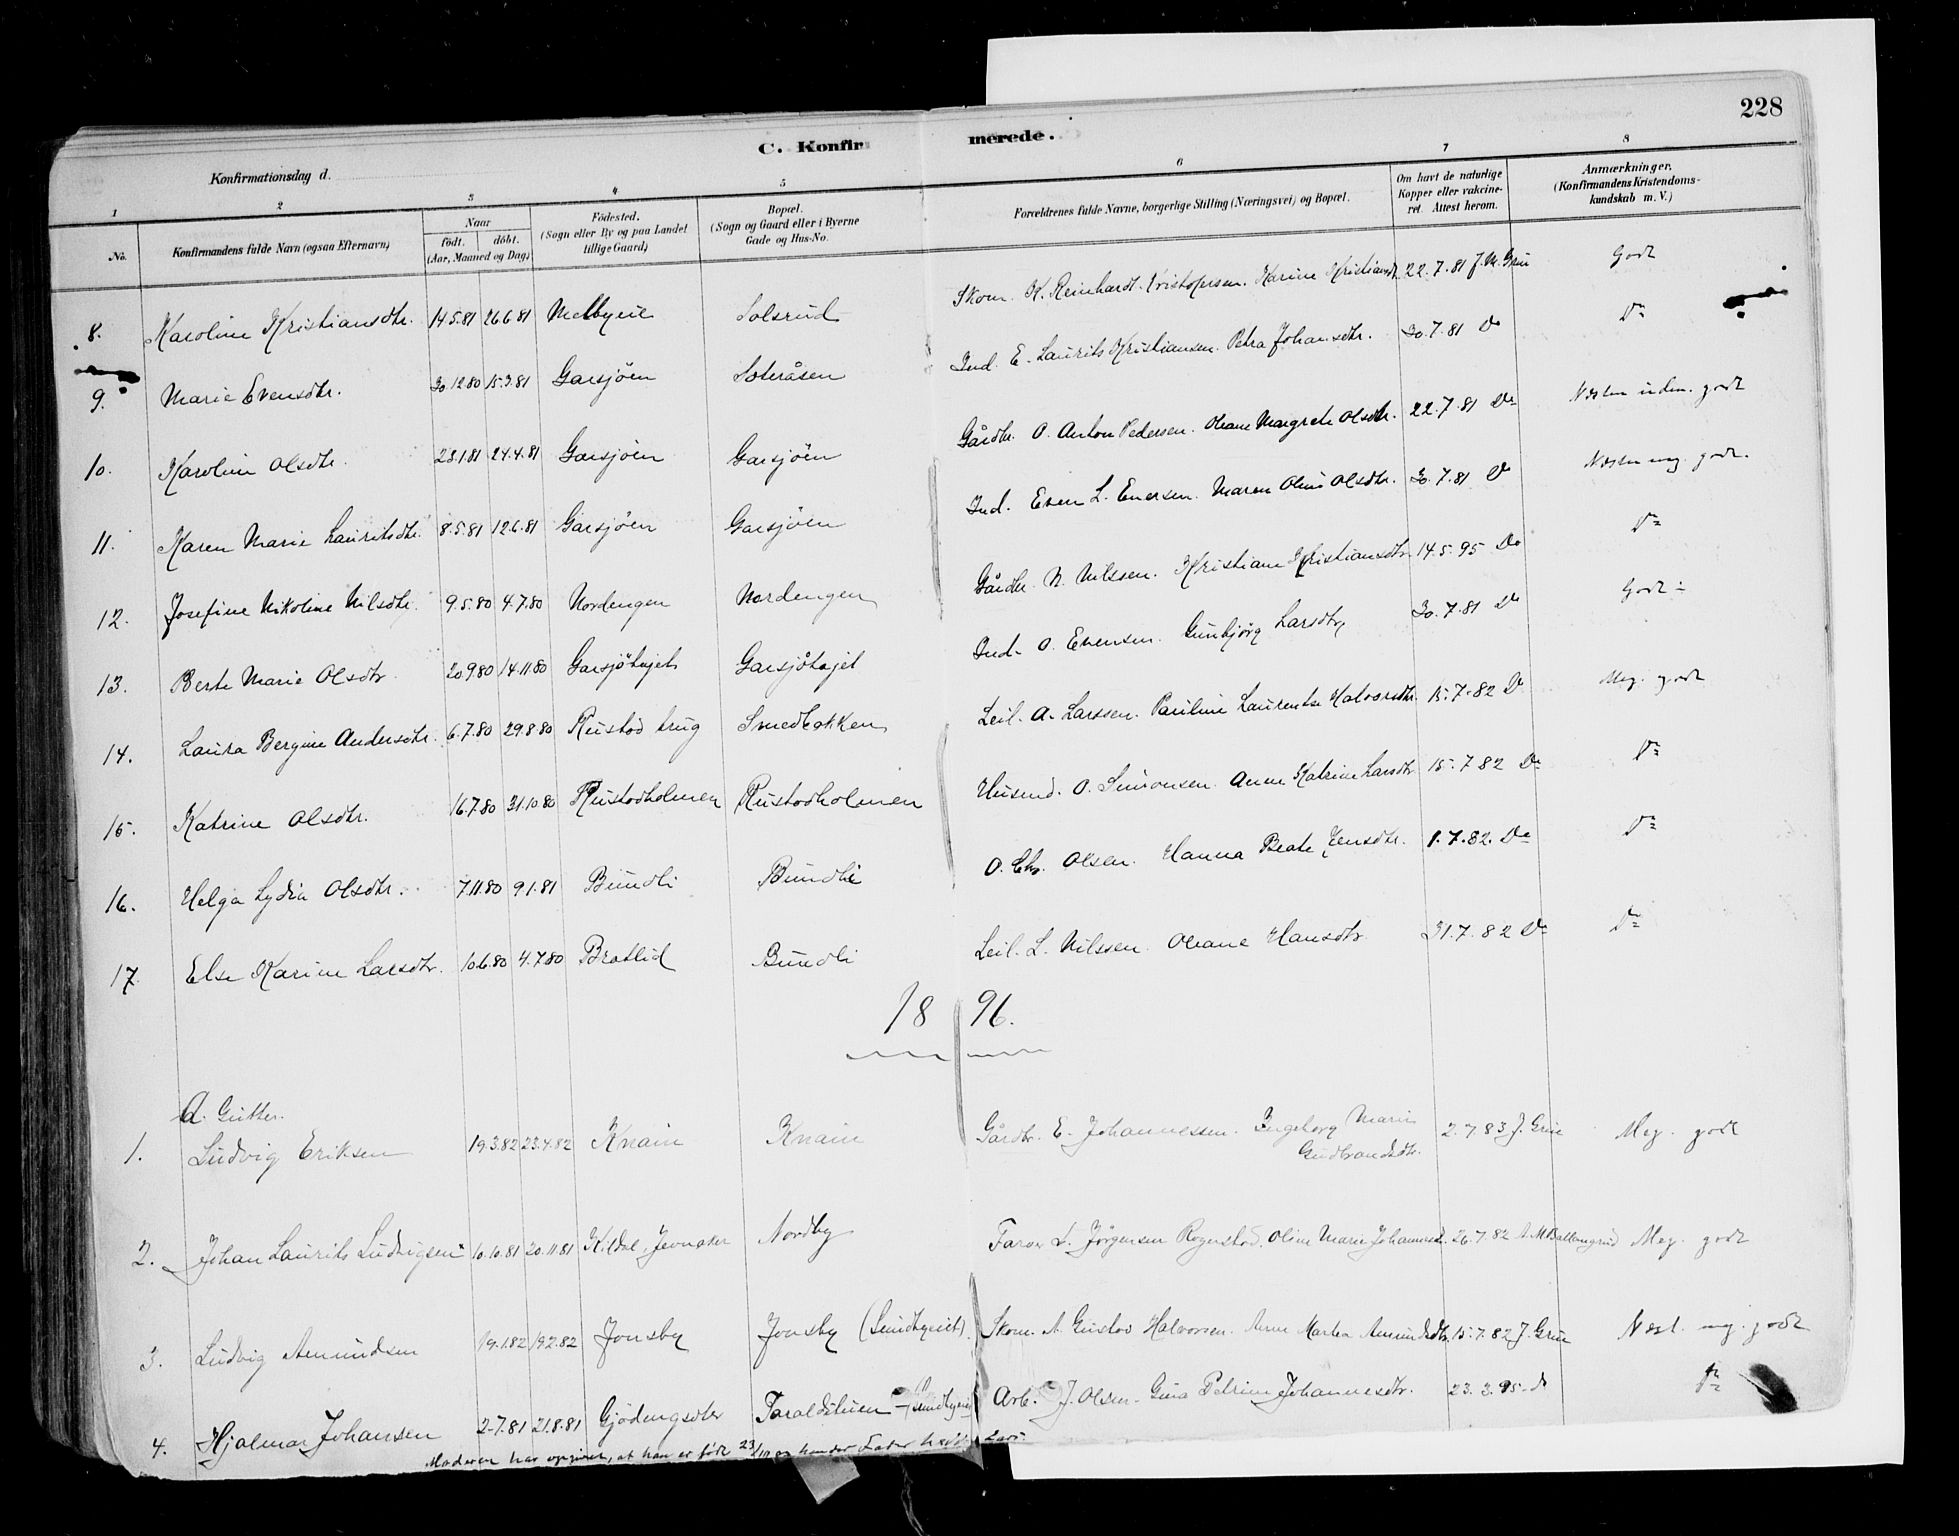 228
C. Konfirmerede.
Konfirmationsdag d.
1 2 3 4 5 6 7 8
No. Konfirmandens fulde Navn (ogsaa Efternavn) Naar født. døbt. (Aar, Maaned og Dag) Fødested. (Sogn eller By og paa Landet tillige Gaard) Bopæl. (Sogn og Gaard eller i Byerne Gade og Hus-No. Forældrenes fulde Navne, borgerlige Stilling (Næringsvei) og Bopæl. Om havt de naturlige Kopper eller vakcineret. Attest herom. Anmærkninger. (Konfirmandens Kristendomskundskab m. V.)
8. Karoline Kristiansdtr. 14.5.81 26.6.81 Melbyeie Solsrud Skom. K. Reinhardt Kristofersen. Karine Kristiansdt. 22.7.81 J. M. Grue Godt
9. Marie Evensdtr. 30.12.80 15.3.81 Garsjöen Soteråsen Ind. E. Laurits Kristiansen. Petra Johansdtr. 30.7.81 Do Do
10. Karoline Olsdtr. 23.1.81 24.4.81 Garsjöen Garsjöen Gårdbr. O. Anton Pedersen. Oleane Margrete Olsdtr. 22.7.81 Do Næsten udm. godt
11. Karen Marie Lauritsdtr. 8.5.81 12.6.81 Garsjöen Garsjöen Ind. Even L. Enersen. Maren Oline Olsdtr. 30.7.81 Do Næsten mg. godt.
12. Josefine Nikoline Nilsdtr. 9.5.80 4.7.80 Nordengen Nordengen Gårdbr. N. Nilssen. Kristiane Kristiansdtr. 14.5.95 Do Do
13. Berte Marie Olsdtr. 20.9.80 14.11.80 Garsjöhajet Garsjöhajet Ind. O. Evensen. Gunbjörg Larsdtr. 30.7.81 Do Godt ÷
14. Laura Bergine Andersdtr. 6.7.80 29.8.80 Rustad Smedbakken Leil. A. Larssen. Pauline Laurentse Halvorsdtr. 15.7.82 Do Meg. godt
15. Katrine Olsdtr. 16.7.80 31.10.80 Rustadholmen Rustadholmen Husmd. O. Simonsen. Anne Katrine Larsdtr. 15.7.82 Do Do
16. Helga Lydia Olsdtr. 7.11.80 9.1.81 Bundli Bundli O. Chr. Olsen. Hanna Beate Jensdtr. 1.7.82. Do Do
17. Else Karine Larsdtr. 10.6.80 4.7.80 Bratlid Bundli Leil. L. Nilssen. Oleane Hansdtr. 31.7.82 Do Do
1896.
A. Gutter.
1. Ludvig Eriksen 19.3.82 23.4.82 Knain Knain Gårdbr. E. Johannessen. Ingeborg Marie Gudbrandsdtr. 2.7.83 J. Grue Meg. godt
2. Johan Laurits Ludvigsen 10.10.81 20.11.81 Kildal, Jevnaker Nordby Farver L. Jörgensen Rognstad. Oline Marie Johannesd. 26.7.82 A. M. Ballangrud Meg. godt
3. Ludvig Amundsen 19.1.82 19.2.82 Jonsby Jonsby (Sundbyeiet). Skom. A. Gustav Halvorsen. Anne Martea Amundsdtr. 15.7.82 J. Grue Næst. mg. godt
4. Hjalmar Johansen 2.7.81 21.8.81 Gjödingsdtr Taraldstuen Sundbyeiet Arb. J. Olsen. Gina Petrine Johannesdtr. 23.3.95 Do Do
Moderen har opgivet, at han er født 23/10